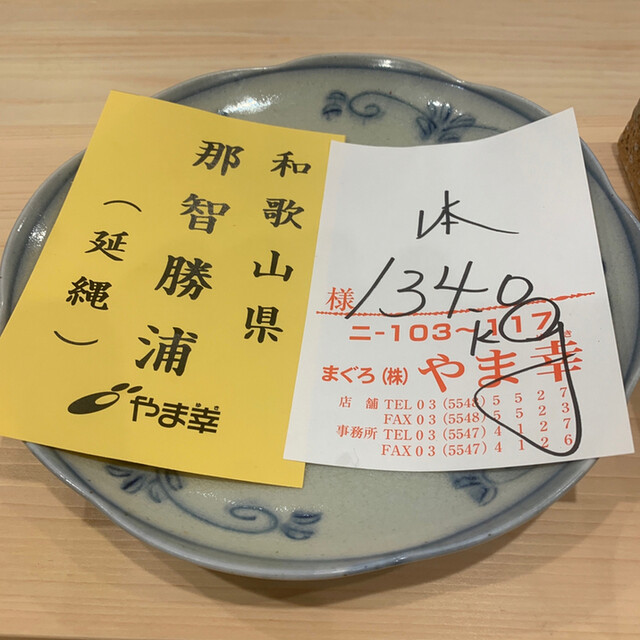 和歌山県
那智勝浦
（延縄）
やま幸
本
様
134.0
kg
ニ-103～117
まぐろ(株)やま幸
店 舗 TEL03(5548)5527
FAX03(5548)5523
事務所 TEL03(5547)4127
FAX03(5547)4126